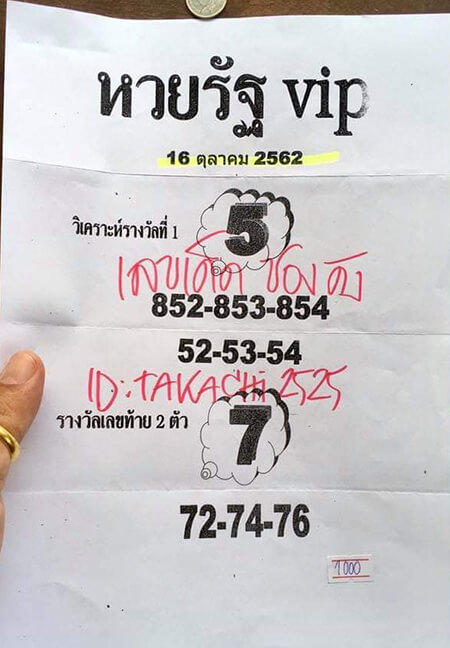 หวยรัฐ vip
16 ตุลาคม 2562
วิเคราะห์รางวัลที่ 1
5
เลขเด็ด ช่อง ดัง
852-853-854
52-53-54
ID: TAKACHi 2525
รางวัลเลขท้าย 2 ตัว
7
72-74-76
1000